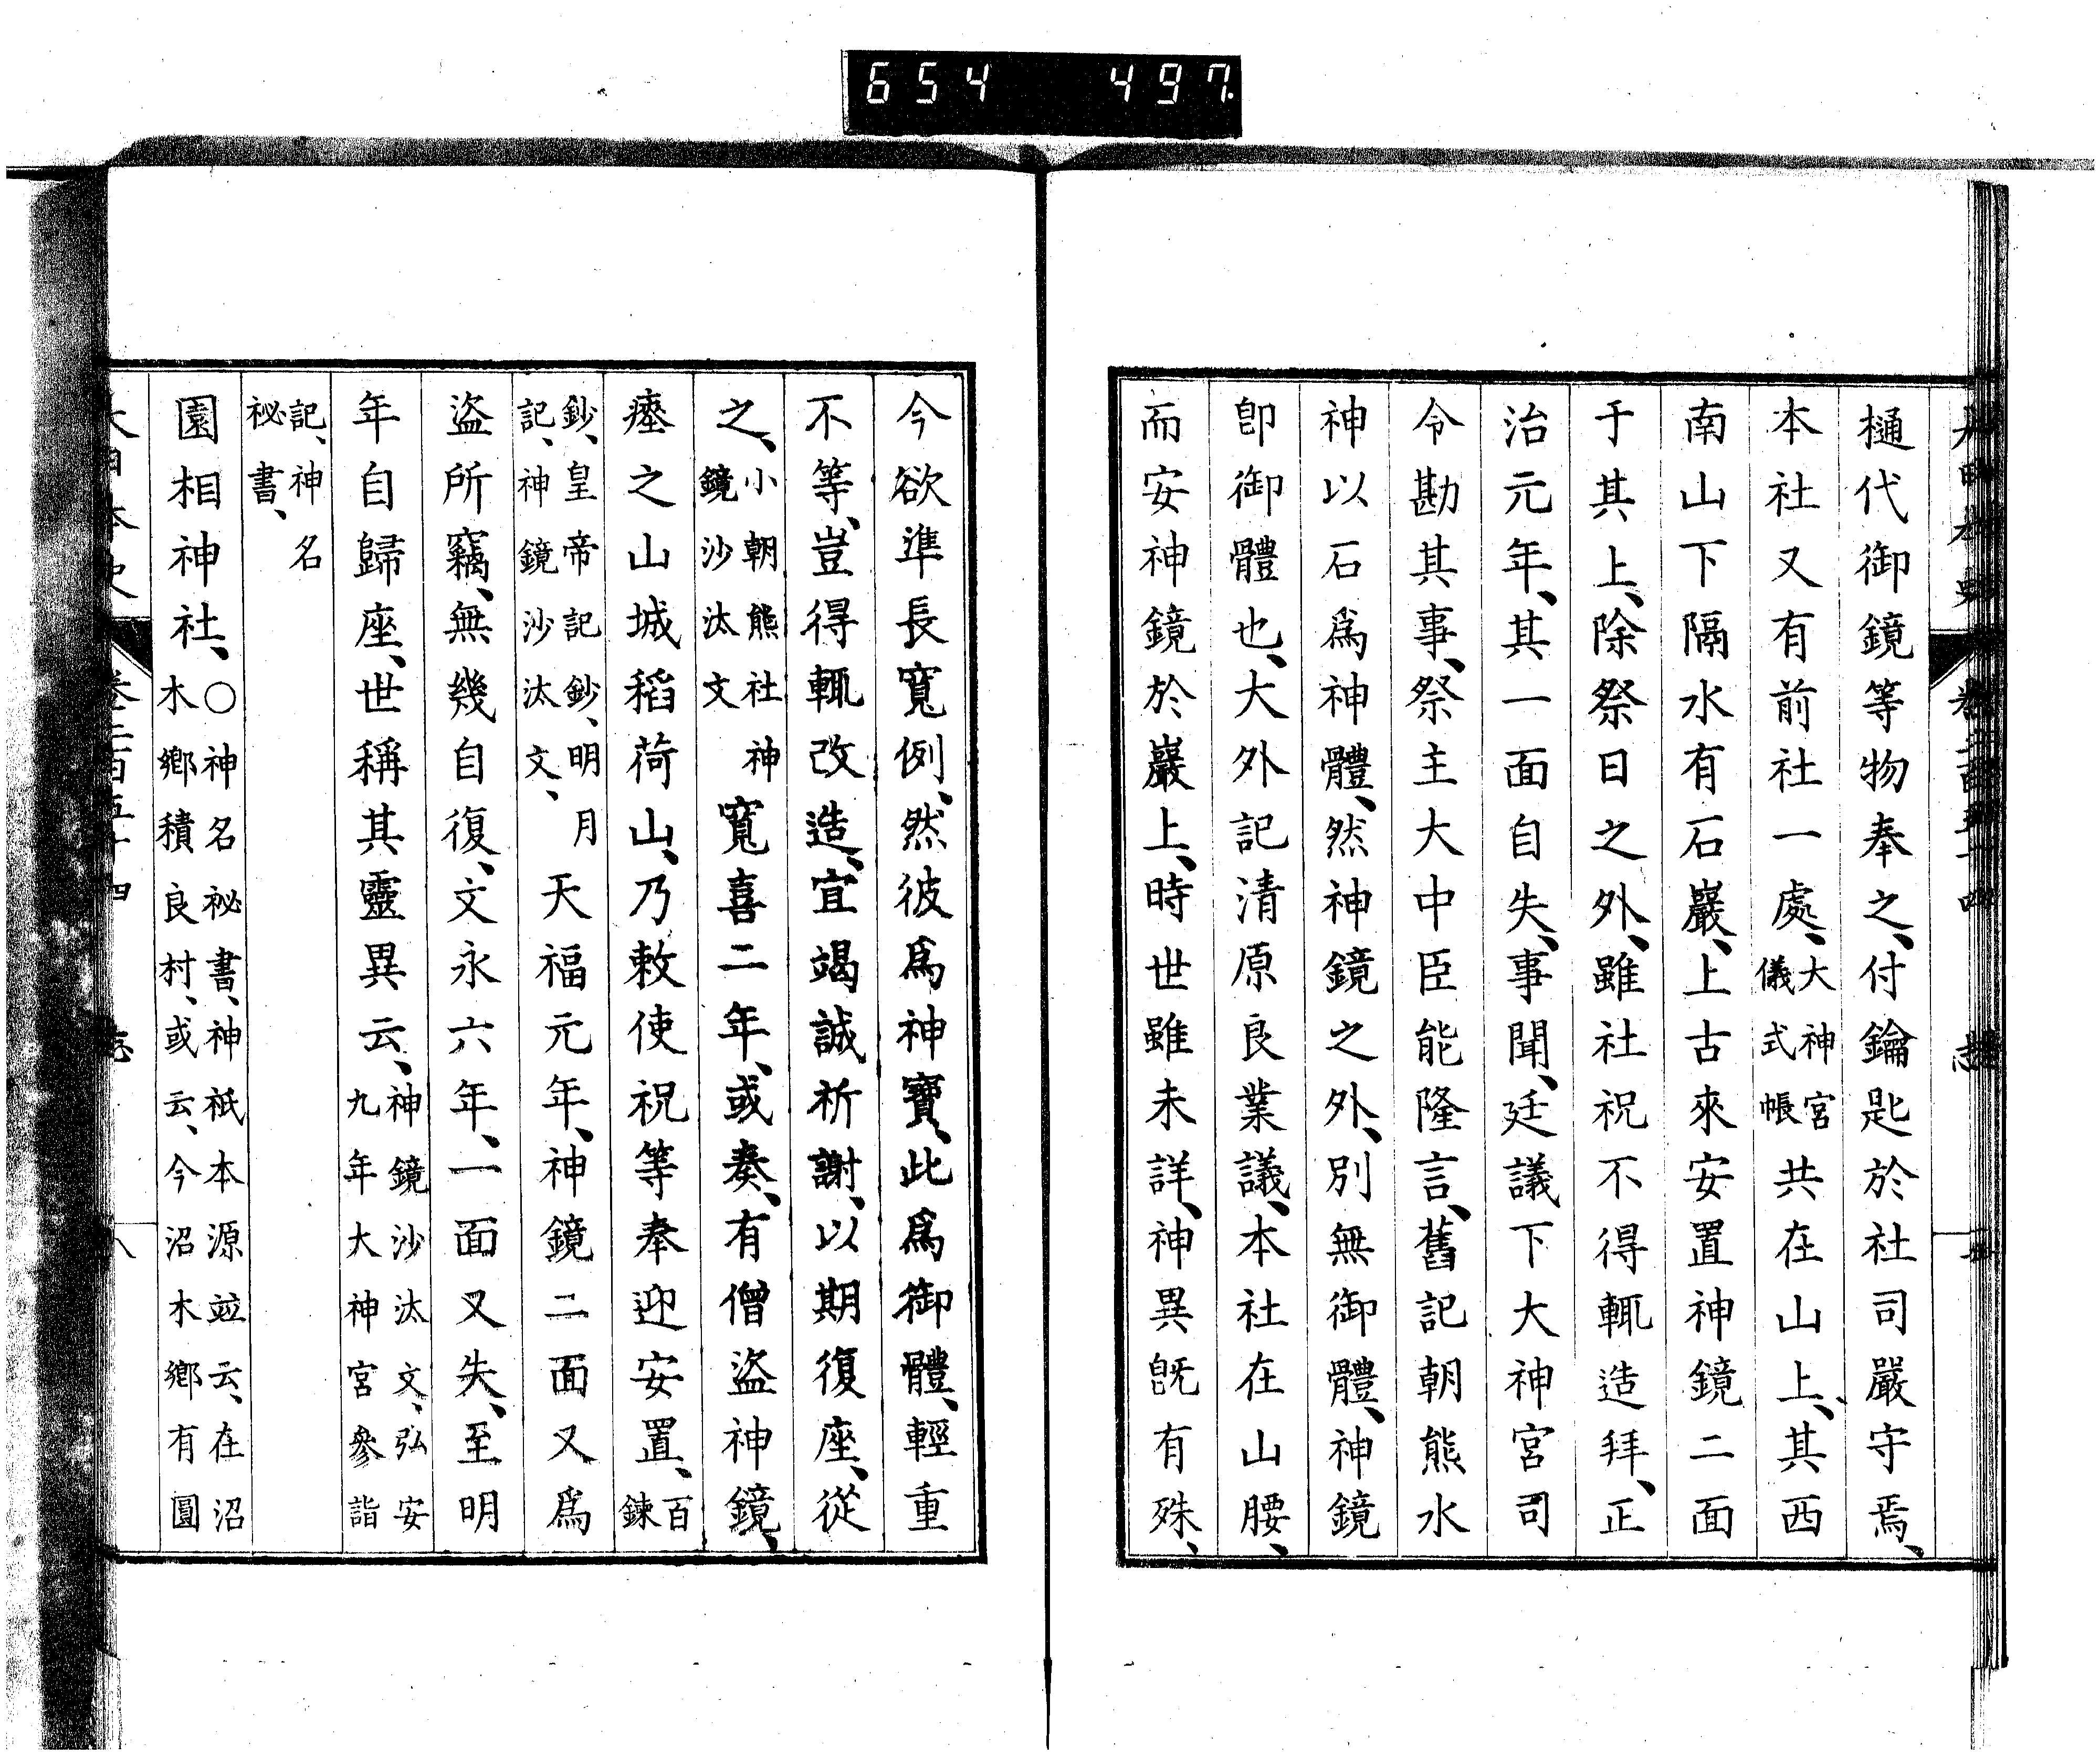 654 497
樋代御鏡等物奉之、付鑰匙於社司嚴守焉、
本社又有前社一處、大神宮儀式帳共在山上、其西
南山下隔水有石巖、上古來安置神鏡二面
于其上、除祭日之外、雖社祝不得輒造拜、正
治元年、其一面自失、事聞、廷議下大神宮司
令勘其事、祭主大中臣能隆言、舊記朝熊水
神以石爲神體、然神鏡之外、別無御體、神鏡
卽御體也、大外記清原良業議、本社在山腰、
而安神鏡於巖上、時世雖未詳、神異既有殊、
今欲準長寬例、然彼爲神寶、此爲御體、輕重
不等、豈得輒改造、宜竭誠祈謝、以期復座、從
之、小朝熊社神鏡沙汰文寬喜二年、或奏、有僧盜神鏡、
瘞之山城稻荷山、乃敕使祝等奉迎安置、百鍊
鈔、皇帝記鈔、明月記、神鏡沙汰文、天福元年、神鏡二面又爲
盜所竊、無幾自復、文永六年、一面又失、至明
年自歸座、世稱其靈異云、神鏡沙汰文、弘安九年大神宮參詣
記、神名祕書、
園相神社、○神名祕書、神祇本源竝云、在沼木鄉積良村、或云、今沼木鄉有圓
大日本史 卷二百五十四 志 八